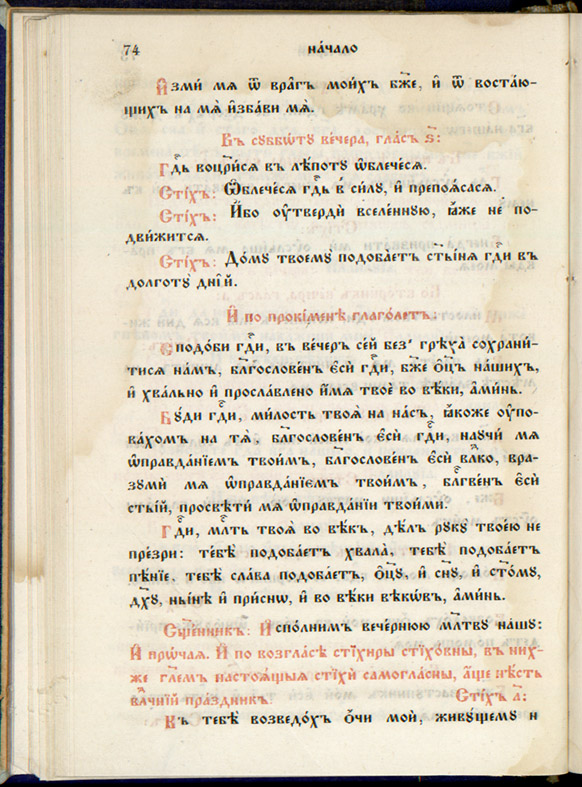 74 нача́ло
И҆зми́ мѧ ѿ вра́гъ мои́хъ бж҃е, и҆ ѿ воста́ю-
щихъ на мѧ̀ и҆зба́ви мѧ̀.
Въ сꙋббѡ́тꙋ ве́чера, гла́съ ѕ҃:
Гдⷭ҇ь воцр҃и́сѧ въ лѣ́потꙋ ѡ҆блече́сѧ.
Сті́хъ: Ѡ҆блече́сѧ гдⷭ҇ь в си́лꙋ, и҆ препоѧ́сасѧ.
Сті́хъ: И҆́бо ᲂу҆твердѝ вселе́ннꙋю, ꙗ҆́же не по-
дви́житсѧ.
Сті́хъ: До́мꙋ твоемꙋ̀ подоба́етъ ст҃ы́нѧ гдⷭ҇и въ
долготꙋ̀ дні́й.
И҆ по прокі́менѣ глаго́летъ:
Сподо́би гдⷭ҇и, въ ве́черъ се́й без̾ грѣха̀ сохрани́-
тисѧ на́мъ, блⷭ҇гослове́нъ є҆сѝ гдⷭ҇и, бж҃е ѻ҆ц҃ъ на́шихъ,
и҆ хва́льно и҆ просла́влено и҆́мѧ твоѐ во вѣ́ки, а҆ми́нь.
Бꙋ́ди гдⷭ҇и, ми́лость твоѧ̀ на на́съ, ꙗ҆́коже ᲂу҆по-
ва́хомъ на тѧ̀, блⷭ҇гослове́нъ є҆сѝ гдⷭ҇и, наꙋчи́ мѧ
ѡ҆правда́нїемъ твои́мъ, блⷭ҇гослове́нъ є҆сѝ влⷣко, вра-
зꙋми́ мѧ ѡ҆правда́нїемъ твои́мъ, блⷭ҇гве́нъ є҆сѝ
ст҃ы́й, просвѣти́ мѧ ѡ҆правда́нїи твои́ми.
Гдⷭ҇и, млⷭ҇ть твоѧ̀ во вѣ́къ, дѣ́лъ рꙋкꙋ̀ твоє́ю не
пре́зри: тебѣ̀ подоба́етъ хвала̀, тебѣ̀ подоба́етъ
пѣ́нїе, тебѣ̀ сла́ва подоба́етъ, ѻ҆ц҃ꙋ̀, и҆ сн҃ꙋ, и҆ ст҃о́мꙋ,
дх҃ꙋ, ны́нѣ и҆ при́снѡ, и҆ во вѣ́ки вѣкѡ́въ, а҆ми́нь.
Сщ҃е́нникъ: И҆спо́лнимъ вече́рнюю мл҃твꙋ на́шꙋ:
И҆ прѡ́чаѧ. И҆ по во́згласѣ стїхи́ры стїхо́вны, въ ни́х-
же гл҃емъ настоѧ́щыѧ стїхѝ самогла́сны, а҆́ще нѣ́сть
влⷣчнїй пра́здникъ. Сті́хъ а҃:
Къ тебѣ̀ возведо́хъ ѻ҆́чи моѝ, живꙋ́щемꙋ н